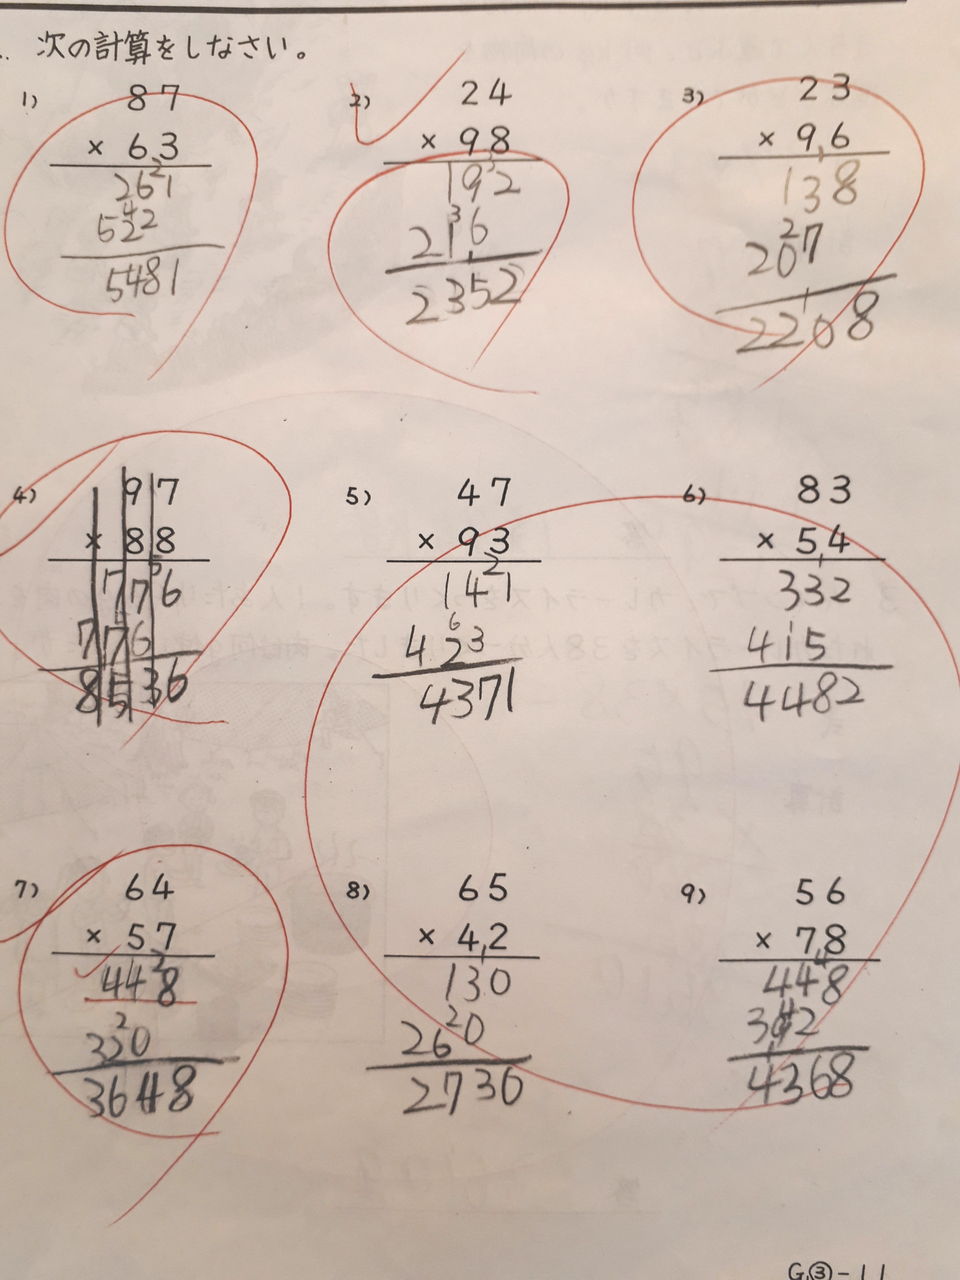 次の計算をしなさい。
1) 87
× 63
261
522
5481
2) 24
× 98
192
216
2352
3) 23
× 96
138
207
2208
4) 97
× 88
776
776
8536
5) 47
× 93
141
423
4371
6) 83
× 54
332
415
4482
7) 64
× 57
448
320
3648
8) 65
× 42
130
260
2730
9) 56
× 78
448
392
4368
G③-11